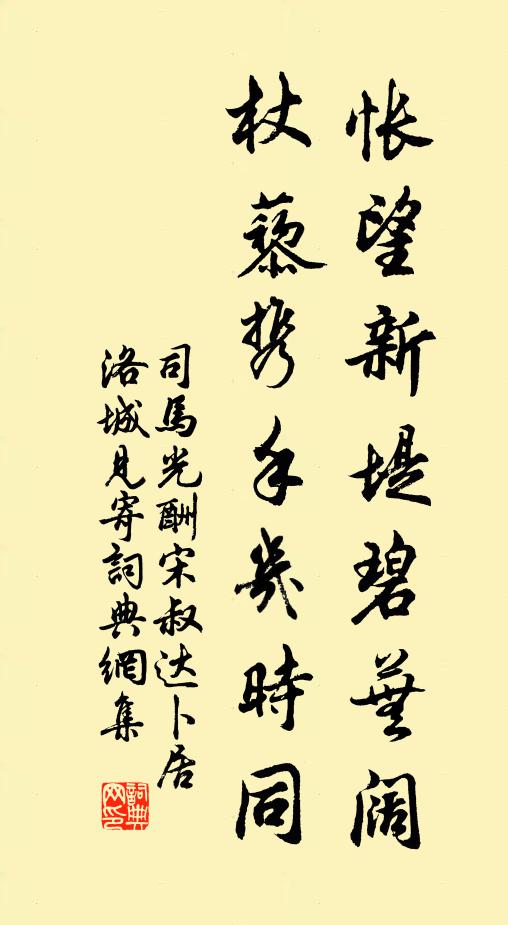 悵望新堤碧蕪阔
杖藜携手幾時同
司馬光酬宋叔达卜居
洛城見寄詞典網集
詞典
网印